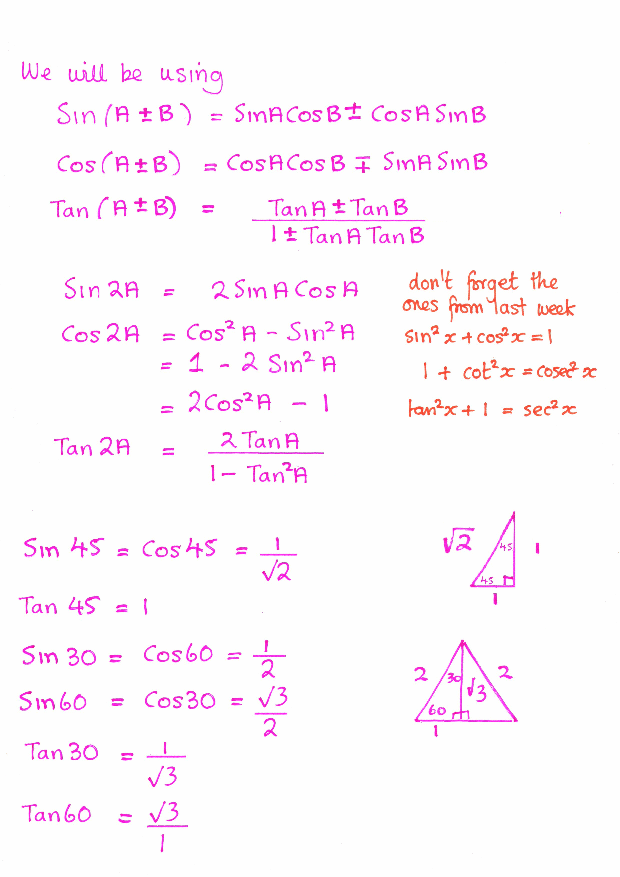 We will be using
Sin (A ± B) = SinACosB ± CosASinB
Cos (A ± B) = CosACosB ∓ SinASinB
Tan (A ± B) = TanA ± TanB
1 ± TanATanB
Sin 2A = 2 Sin A Cos A
Cos 2A = Cos² A - Sin² A
= 1 - 2 Sin² A
= 2Cos²A - 1
Tan 2A = 2 Tan A
1 - Tan²A
don't forget the
ones from last week
sin² x + cos² x = 1
1 + cot² x = cosec² x
tan² x + 1 = sec² x
Sin 45 = Cos 45 = 1
√2
Tan 45 = 1
Sin 30 = Cos 60 = 1
2
Sin 60 = Cos 30 = √3
2
Tan 30 = 1
√3
Tan 60 = √3
1
√2 45 1
45
1
2 30 √3 2
60
1